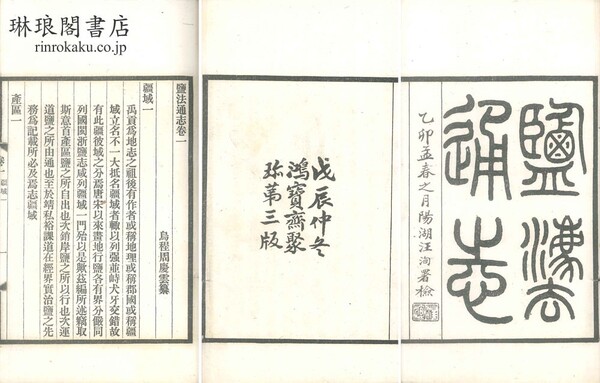 琳琅閣書店
rinrokaku.co.jp
鹽法
通志
乙卯孟春之月陽湖汪洵署檢
戊辰仲冬
鴻寶齋聚
珍第三版
鹽法通志卷一
烏程周慶雲纂
疆域一
禹貢爲地志之祖後有作者或稱地理或稱郡國或稱疆
域立名不一大抵名疆域者輒以列强並峙犬牙交錯故
有此疆彼域之分焉唐宋以來畫地行鹽各有界分儼同
列國閩浙鹽志咸列疆域一門殆以是歟茲編所述竊取
斯意首產區鹽之所自出也次銷岸鹽之所以行也次運
道鹽之所由通也至於靖私裕課道在經界實治鹽之先
務爲記載所必及焉志疆域
產區一
卷一 疆域一